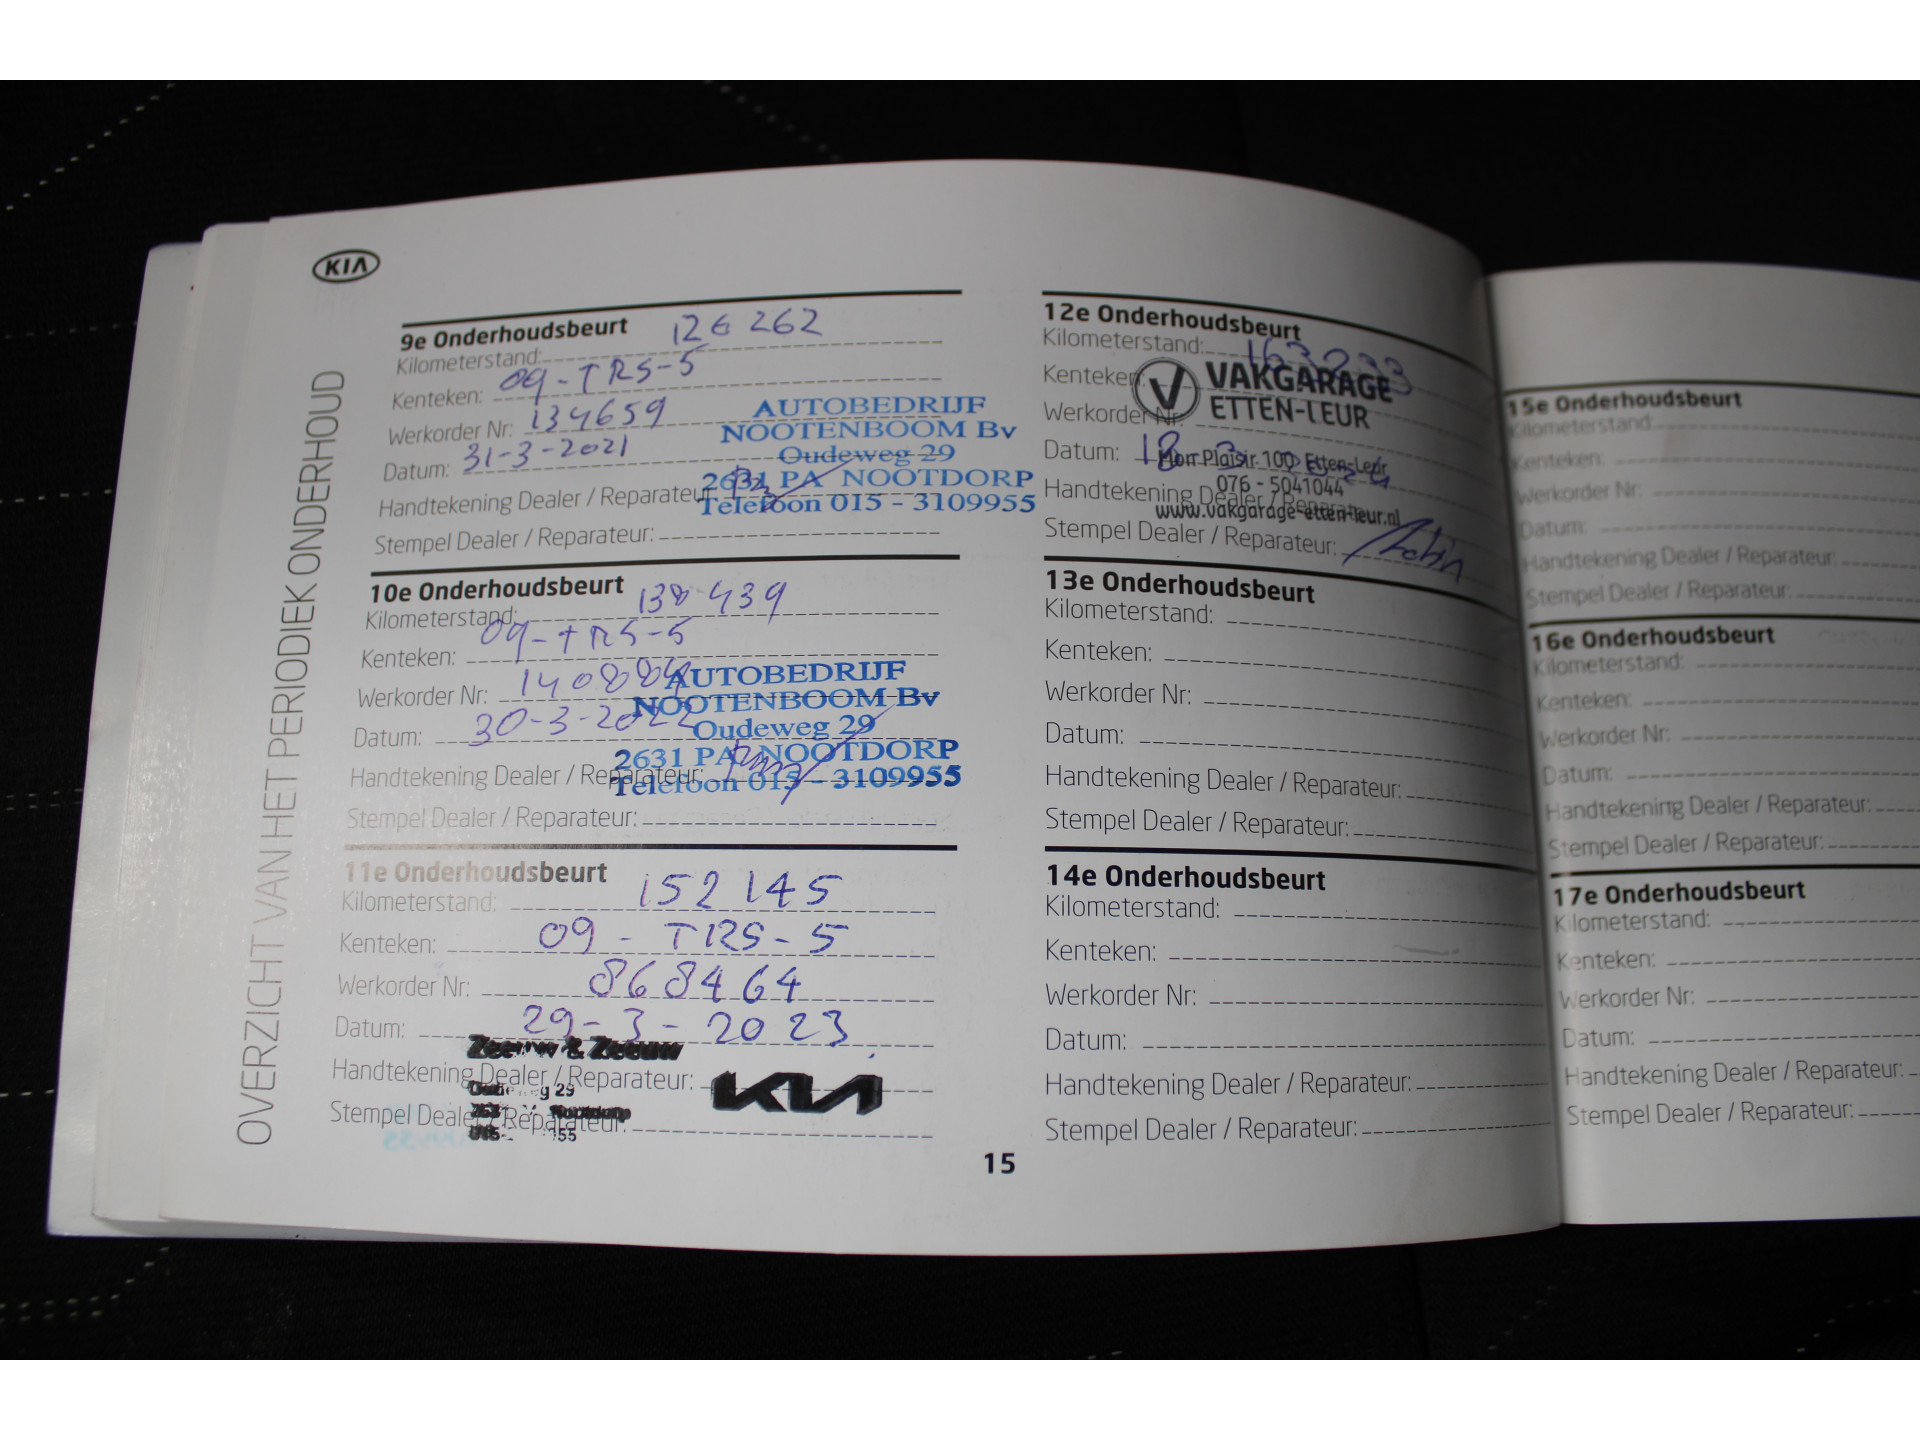 KIA
OVERZICHT VAN HET PERIODIEK ONDERHOUD
9e Onderhoudsbeurt
Kilometerstand: 126 262
Kenteken: 09-TRS-5
Werkorder Nr: 134659
Datum: 31-3-2021
Handtekening Dealer / Reparateur
Stempel Dealer / Reparateur:
AUTOBEDRIJF
NOOTENBOOM Bv
Oudeweg 29
2631 PA NOOTDORP
Telefoon 015 - 3109955
10e Onderhoudsbeurt
Kilometerstand: 138 439
Kenteken: 09-TRS-5
Werkorder Nr: 140884
Datum: 30-3-2022
Handtekening Dealer / Reparateur:
Stempel Dealer / Reparateur:
AUTOBEDRIJF
NOOTENBOOM Bv
Oudeweg 29
2631 PA NOOTDORP
Telefoon 015 - 3109955
11e Onderhoudsbeurt
Kilometerstand: 152 145
Kenteken: 09 - TRS - 5
Werkorder Nr: 868464
Datum: 29-3-2023
Handtekening Dealer / Reparateur:
Stempel Dealer / Reparateur:
Zeeuw & Zeeuw
KIA
12e Onderhoudsbeurt
Kilometerstand: 163233
Kenteken:
Werkorder Nr:
Datum: 18-3-2024
Handtekening Dealer / Reparateur
Stempel Dealer / Reparateur:
VAKGARAGE
ETTEN-LEUR
Mon Plaisir 100 Etten-Leur
076 - 5041044
www.vakgarage-etten-leur.nl
13e Onderhoudsbeurt
Kilometerstand:
Kenteken:
Werkorder Nr:
Datum:
Handtekening Dealer / Reparateur:
Stempel Dealer / Reparateur:
14e Onderhoudsbeurt
Kilometerstand:
Kenteken:
Werkorder Nr:
Datum:
Handtekening Dealer / Reparateur:
Stempel Dealer / Reparateur:
15
15e Onderhoudsbeurt
Kilometerstand:
Kenteken:
Werkorder Nr:
Datum:
Handtekening Dealer / Reparateur:
Stempel Dealer / Reparateur:
16e Onderhoudsbeurt
Kilometerstand:
Kenteken:
Werkorder Nr:
Datum:
Handtekening Dealer / Reparateur:
Stempel Dealer / Reparateur:
17e Onderhoudsbeurt
Kilometerstand:
Kenteken:
Werkorder Nr:
Datum:
Handtekening Dealer / Reparateur:
Stempel Dealer / Reparateur: